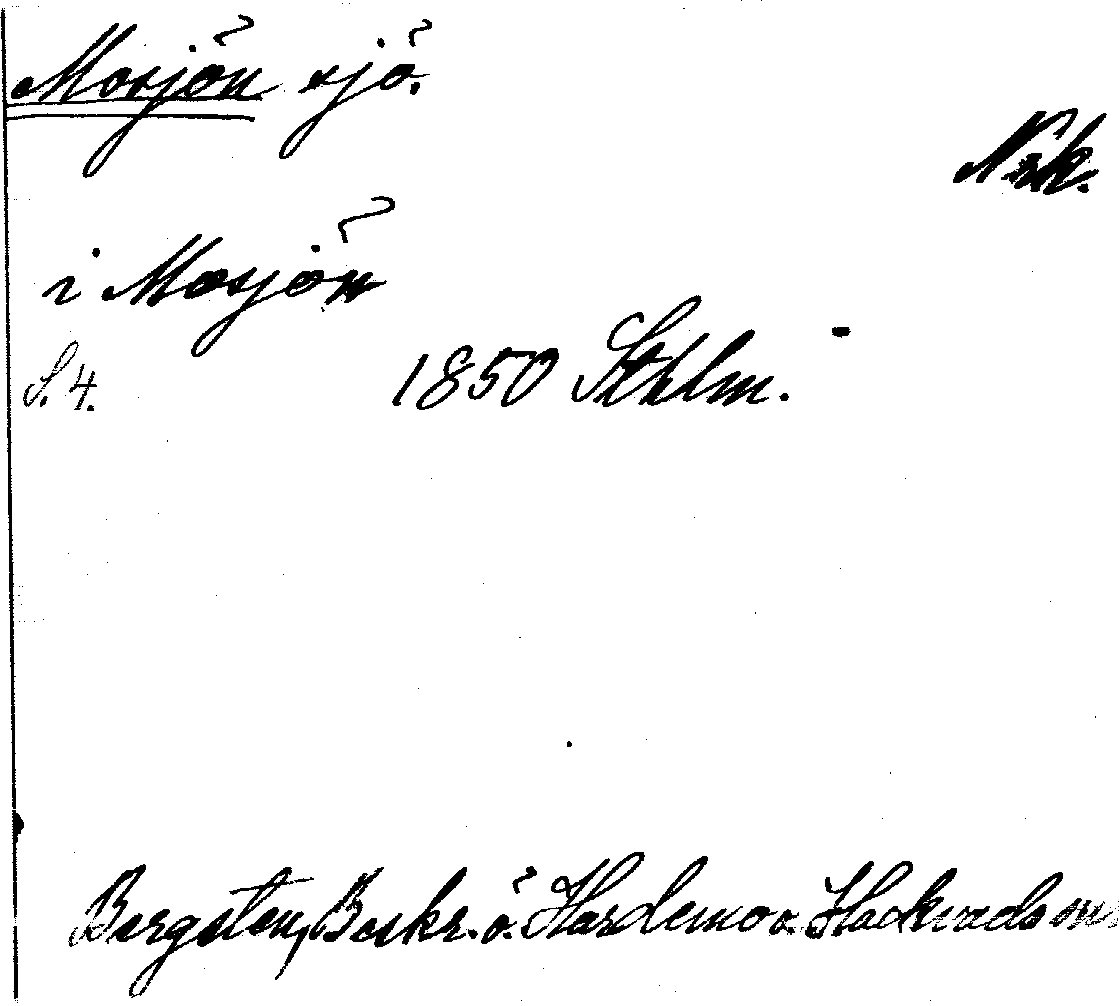 Mosjön sjö.
Nrk.
i Mosjön
S. 4. 1850 Sthlm.
Bergsten, Beskr. ö. Hardemo o. Hackvads